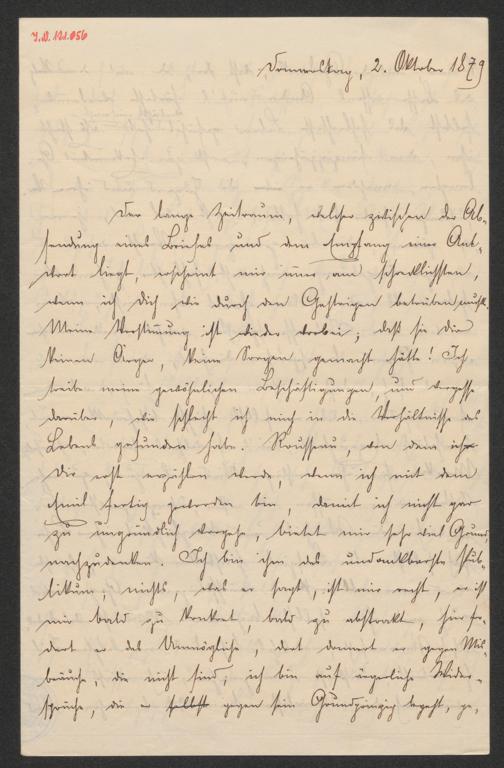 I.N. 121.056
Donnerstag, 2. Oktober 1879
Der lange Zeitraum, welcher zwischen der Ab-
sendung eines Briefes und dem Empfang einer Ant-
wort liegt, erscheint mir immer am schrecklichsten,
wenn ich Dich wie durch den Gestrigen betrüben mußte.
Meine Verstimmung ist wieder vorbei; daß sie Dir
keinen Ärger, keine Sorgen gemacht hätte! Ich
treibe meine gewöhnlichen Beschäftigungen, und vergesse
darüber, wie schlecht ich mich in die Verhältnisse des
Lebens gefunden habe. Rousseau, von dem ich
Dir erst erzählen werde, wenn ich mit dem
Emil fertig geworden bin, damit ich nicht gar
zu ungründlich vorgehe, bietet mir sehr viel Grund,
nachzudenken. Ich bin ihm das undankbarste Pub-
likum; nichts, was er sagt, ist mir recht, er ist
mir bald zu konkret, bald zu abstrakt, hier for-
dert er das Unmögliche, dort donnert er gegen Mis-
bräuche, die nicht sind; ich bin auf ärgerliche Wider-
sprüche, die er selbst gegen sein Grundprinzip begeht, ge-